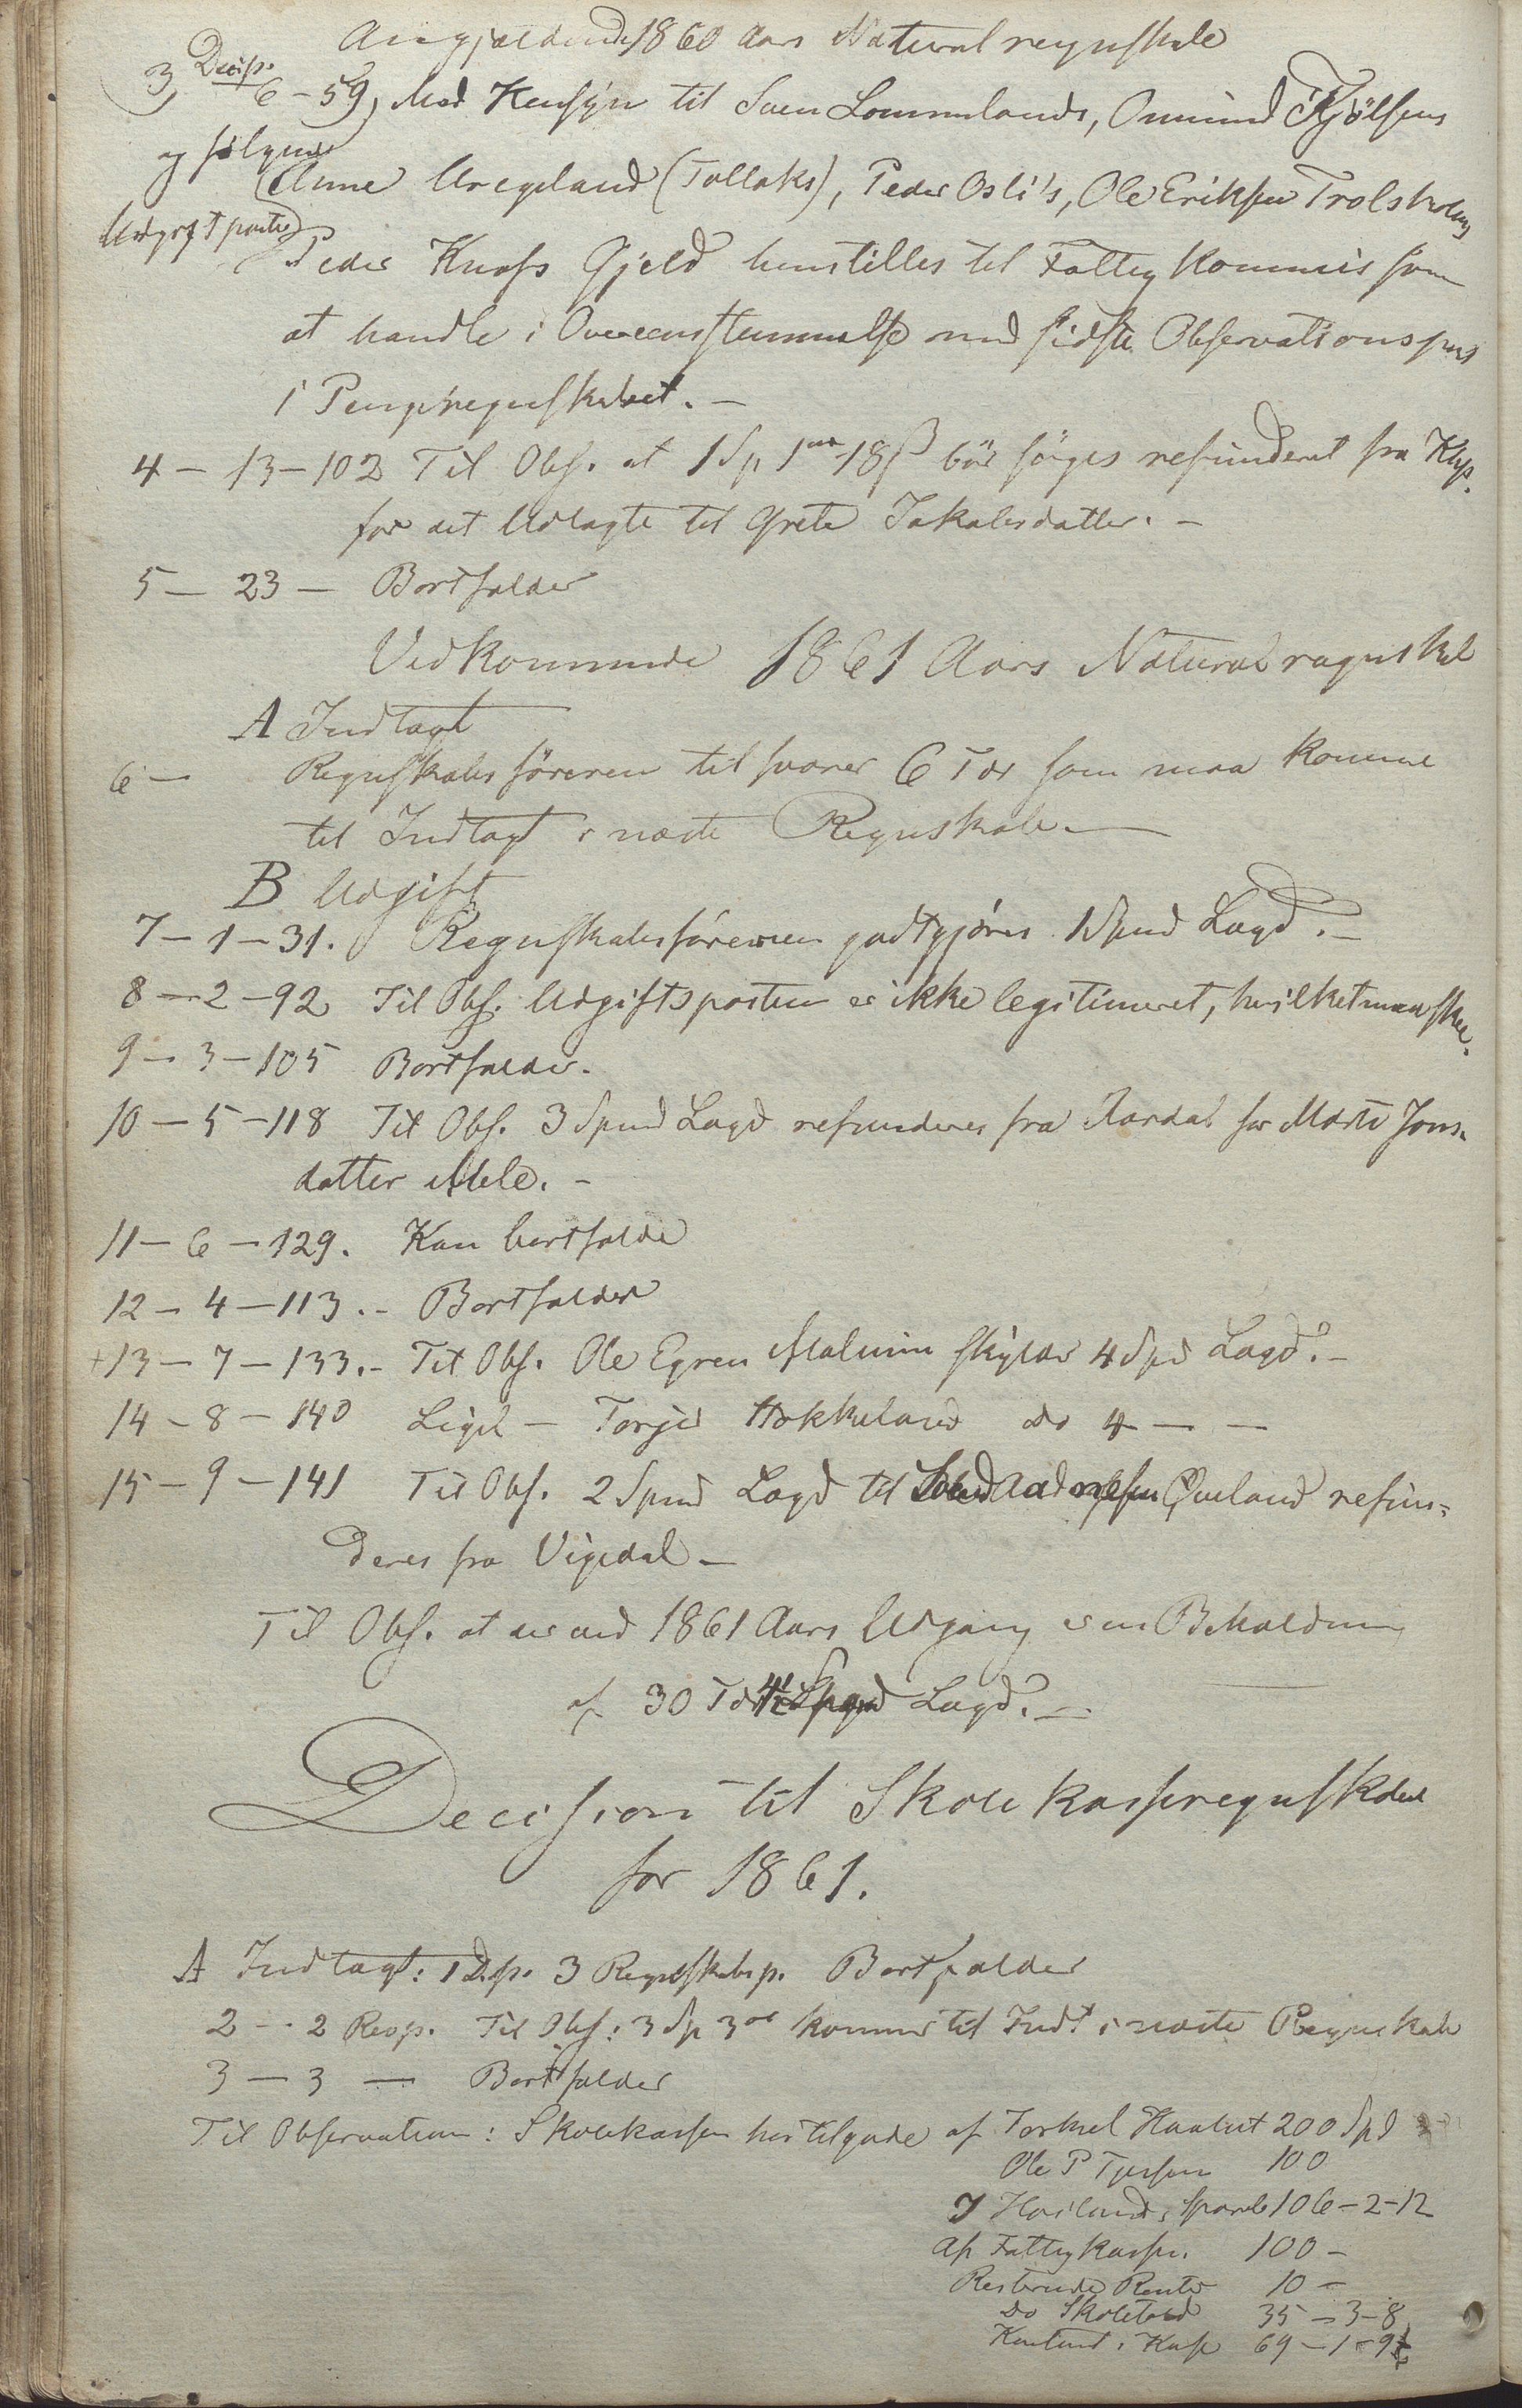 Angjældende 1860 Aars Naturalregnskab
3, Decisp. 6-59, Med Hensyn til Sven Lommelands, Ommund Kjölsens
og følgende (Anne Uregeland (Tollaks), Peder Osli's, Ole Eriksen Trolsholm
Udgiftsposter Peder Knøfs Gjeld henstilles til Fattigkommissionen
at handle i Overeensstemmelse med sidste Observationspost
i Pengeregnskabet. -
4 - 13 - 102 Til Obs. at 1 Sp 1 18 ß bör söges refunderet fra Klep.
for det Udlagte til Grete Jakobsdatter. -
5 - 23 - Bortfalder
Vedkommende 1861 Aars Naturalregnskab
A Indtægt
6 - Regnskabsföreren tilsvarer 6 Tdr som maa komme
til Indtægt i næste Regnskab. -
B Udgift
7 - 1 - 31. Regnskabsföreren godtgjöres 1 Spnd Lagd. -
8 - 2 - 92 Til Obs. Udgiftsposten er ikke legitimeret, hvilket maa skee.
9 - 3 - 105 Bortfalder.
10 - 5 - 118 Til Obs. 3 Spnd Lagd refunderes fra Aardal for Marte Jons-
datter Mele. -
11 - 6 - 129. Kan bortfalde
12 - 4 - 113. - Bortfalder
+13 - 7 - 133. - Til Obs. Ole Egren Malmin skylder 4 Spd Lagd. -
14 - 8 - 140 Ligel - Torjer Hokkeland do 4 - -
15 - 9 - 141 Til Obs. 2 Spnd Lagd til Øueland refun-
deres fra Vigedal -
Til Obs. at der ved 1861 Aars Udgang er en Beholdning
af 30 Tdr 4½ Spnd Lagd. -
Decision til Skolekasseregnskabet
for 1861.
A Indtægt: 1 D.p. 3 Regnskabsp. Bortfalder
2 - 2 Regp. Til Obs: 3 Sp 3 ort kommer til Indt i næste Regnskab
3 - 3 - Bortfalder
Til Observation: Skolekassen har tilgode af Torkel Haalut 200 Spd
Ole P Tjersen 100
J Hoilands Spareb 106-2-12
Af Fattigkassen. 100 -
Resterende Renter 10 -
do Skoletold 35 - 3 - 8
Kontant i Kasse 69 - 1 - 9½